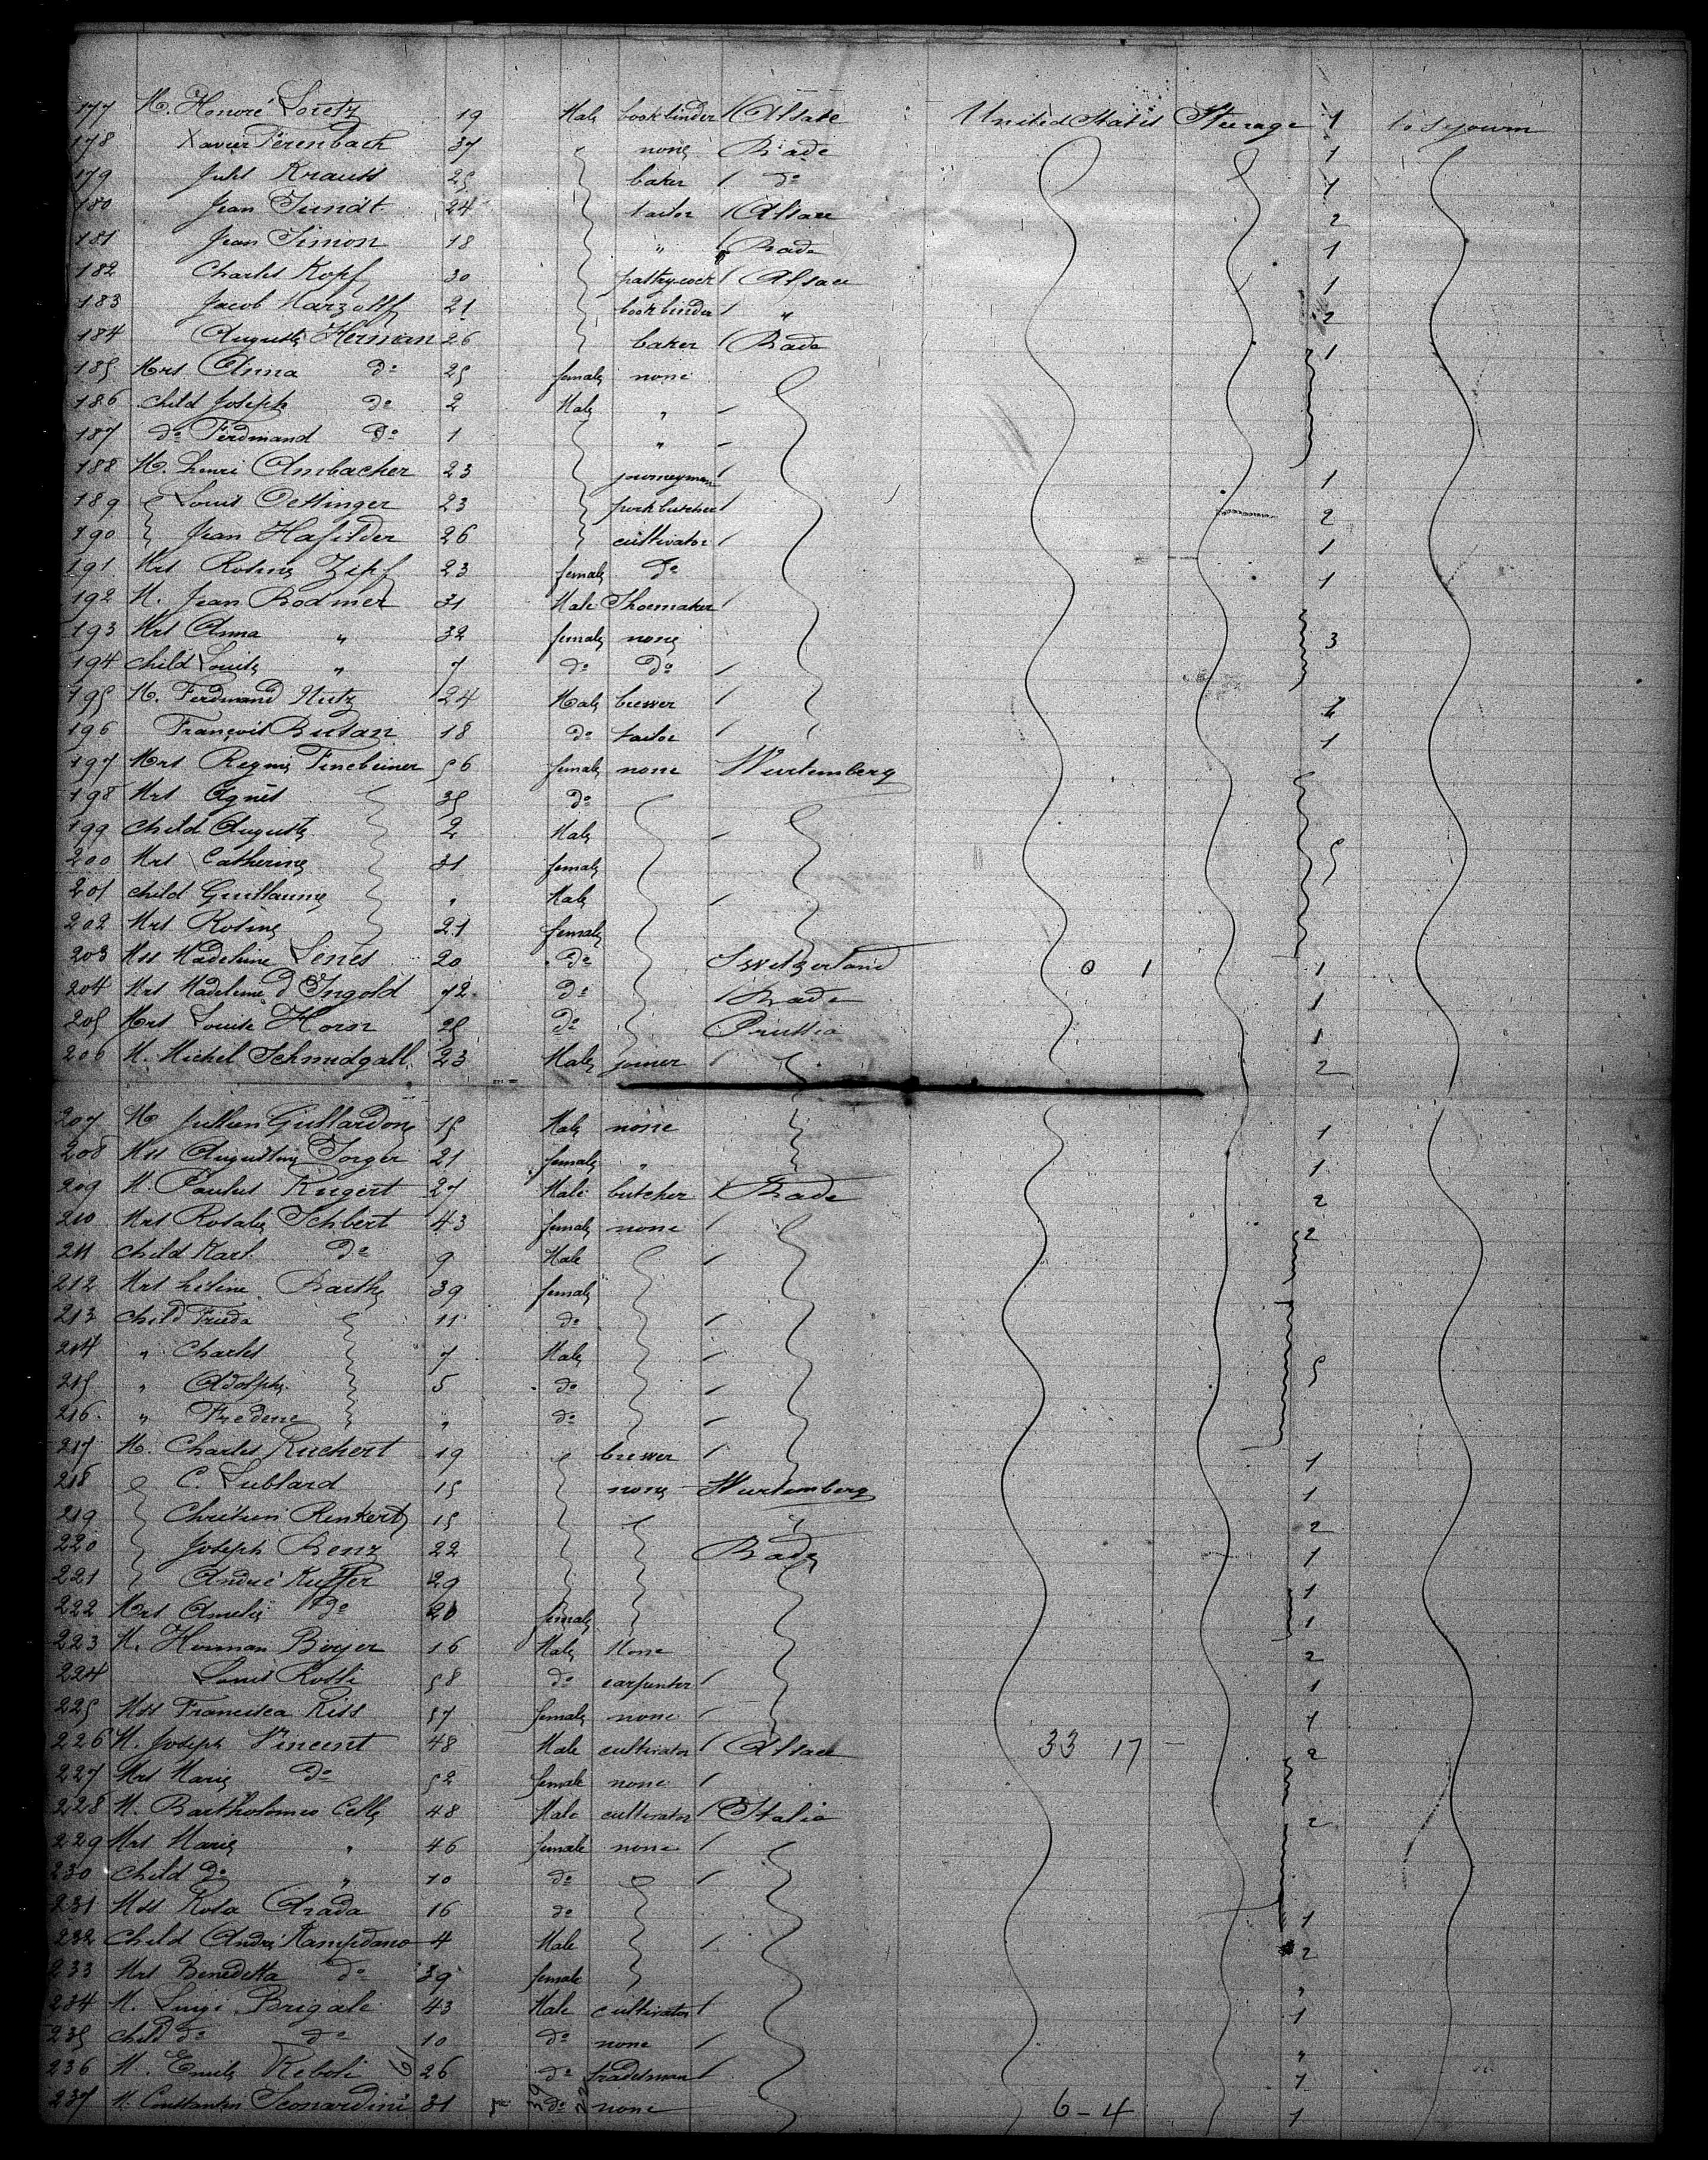 177 M. Honoré Loretz 19 Male bookbinder Alsace United States Steerage 1 to sejourn
178 Xavier Ferenbach 37 none Bade 1
179 Jules Krauss 25 baker do 1
180 Jean Jundt 24 tailor Alsace 2
181 Jean Simon 18 " Bade 1
182 Charles Kopf 30 pastry-cook Alsace 1
183 Jacob Marzolff 21 bookbinder " 2
184 Auguste Herman 26 baker Bade 1
185 Mrs Anna do 25 female none
186 child Joseph do 2 Male "
187 do Ferdinand do 1 "
188 M. henri Ambacher 23 journeyman 1
189 Louis Oettinger 23 pork butcher 2
190 Jean 26 cultivator 1
191 Mrs Rosine Zipf 23 female do 1
192 M. Jean Bodmer 31 Male Shoemaker
193 Mrs Anna " 32 female none 3
194 child Louise " 7 do do
195 M. Ferdinand Nutz 24 Male brewer
196 François 18 do tailor 1
197 Mrs Regine Fincbeiner 56 female none Wurtemberg
198 Mrs Agnès 35 do
199 child Auguste 2 Male 5
200 Mrs Catherine 31 female
201 child Guillaume " Male
202 Mrs Rosine 21 female
203 Mss Madeleine 20 do Switzerland 0 1 1
204 Mrs Madeleine d'Ingold 72 do Bade 1
205 Mrs Louise Horn 25 do Prussia 1
206 M. Michel Schmidgall 23 Male joiner 2
207 M Jullien 15 Male none 1
208 Mss Augustine Sorger 21 female " 1
209 M. Paulus Rugert 27 Male butcher Bade 2
210 Mrs Rosalie Schbert 43 female none 2
211 child Karl do 9 Male
212 Mrs Barthe 39 female
213 child Frieda 11 do
214 " Charles 7 Male 5
215 " Adolphe 5 do
216 " Frederic " do
217 M. Charles Ruchert 19 brewer 1
218 C. Lublard 15 none Wurtemberg 1
219 Chrétien Renkert 15 " 2
220 Joseph Benz 22 Bade 1
221 André Kuffer 29 1
222 Mrs Amelie do 20 female 1
223 M. Herman Boyer 16 Male None 2
224 Louis 58 do carpenter 1
225 Mss Francisca Kiss 57 female none 1
226 M. Joseph Vincent 48 Male cultivator Alsace 33 17 2
227 Mrs Marie do 52 female none
228 M. Bartholomeo Celle 48 Male cultivator Italia 2
229 Mrs Marie " 46 female none
230 child do " 10 do
231 Mss Rosa Arada 16 do 1
232 child André Campodano 4 Male 2
233 Mrs Benedetta do 39 female "
234 M. Luigi Brigale 43 Male cultivator 1
235 child do do 10 do none "
236 M. Emile Reboli 61 26 do tradesman 1
237 M. Constantin Leonardini 31 39 do 22 none 6-4 1